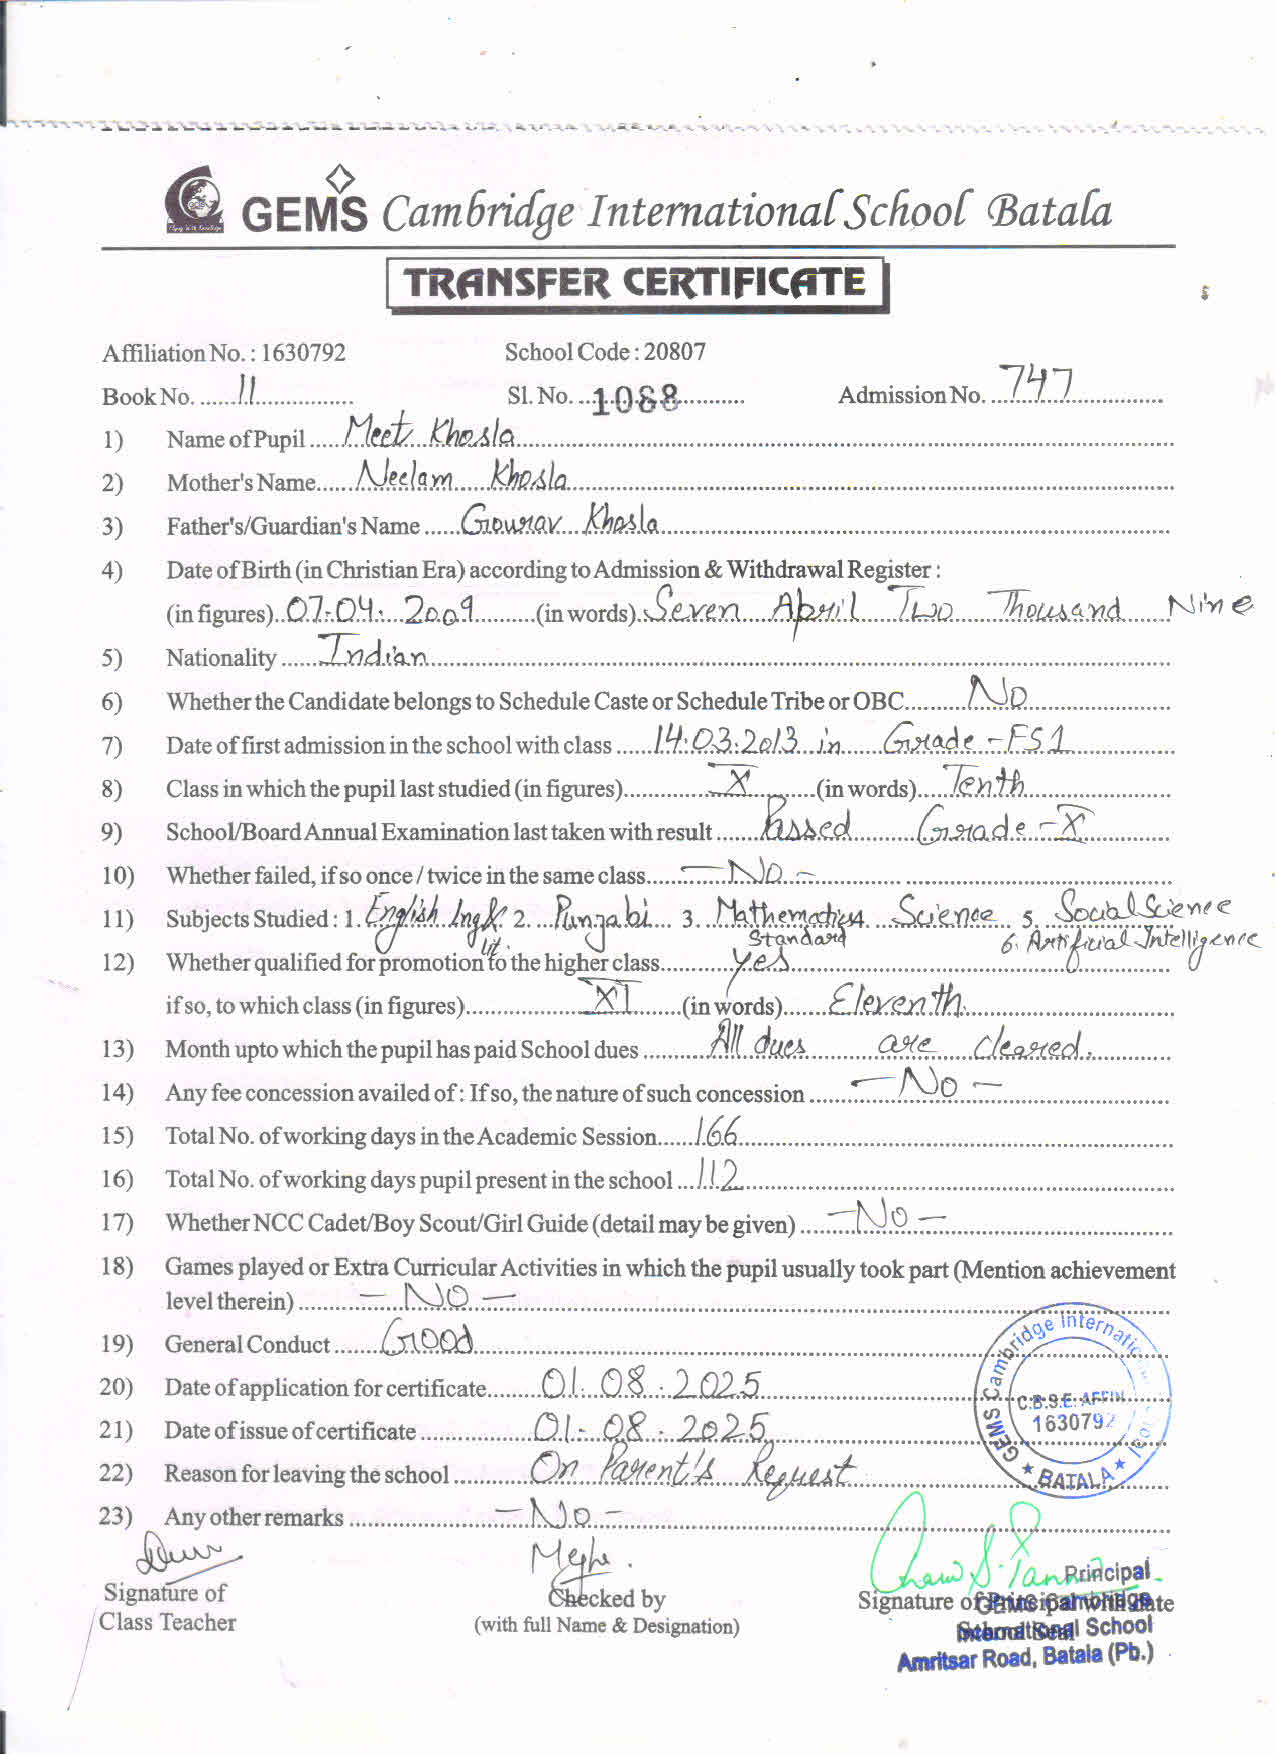 GEMS Cambridge International School Batala
TRANSFER CERTIFICATE
Affiliation No. : 1630792 School Code : 20807
Book No. 11 Sl. No. 1088 Admission No. 747
1) Name of Pupil Meet Khosla
2) Mother's Name Neelam Khosla
3) Father's/Guardian's Name Gourav Khosla
4) Date of Birth (in Christian Era) according to Admission & Withdrawal Register :
(in figures) 07.04.2009 (in words) Seven April Two Thousand Nine
5) Nationality Indian
6) Whether the Candidate belongs to Schedule Caste or Schedule Tribe or OBC No
7) Date of first admission in the school with class 14.03.2013 in Grade - FS1
8) Class in which the pupil last studied (in figures) X (in words) Tenth
9) School/Board Annual Examination last taken with result Passed Grade - X
10) Whether failed, if so once / twice in the same class - No -
11) Subjects Studied : 1. English lng & 2. Punjabi 3. Mathematics 4. Science 5. Social Science
lit. Standard 6. Artificial Intelligence
12) Whether qualified for promotion to the higher class yes
if so, to which class (in figures) XI (in words) Eleventh
13) Month upto which the pupil has paid School dues All dues are cleared.
14) Any fee concession availed of : If so, the nature of such concession - No -
15) Total No. of working days in the Academic Session 166
16) Total No. of working days pupil present in the school 112
17) Whether NCC Cadet/Boy Scout/Girl Guide (detail may be given) - No -
18) Games played or Extra Curricular Activities in which the pupil usually took part (Mention achievement
level therein) - NO -
19) General Conduct Good
20) Date of application for certificate 01.08.2025
21) Date of issue of certificate 01.08.2025
22) Reason for leaving the school On Parent's Request
23) Any other remarks - No -
GEMS Cambridge Internati
C.B.S.E. AFFIN
1630792
BATALA
Megha.
Signature of Checked by Principal
Class Teacher (with full Name & Designation) Signature of Principal with Date
International School
Amritsar Road, Batala (Pb.)